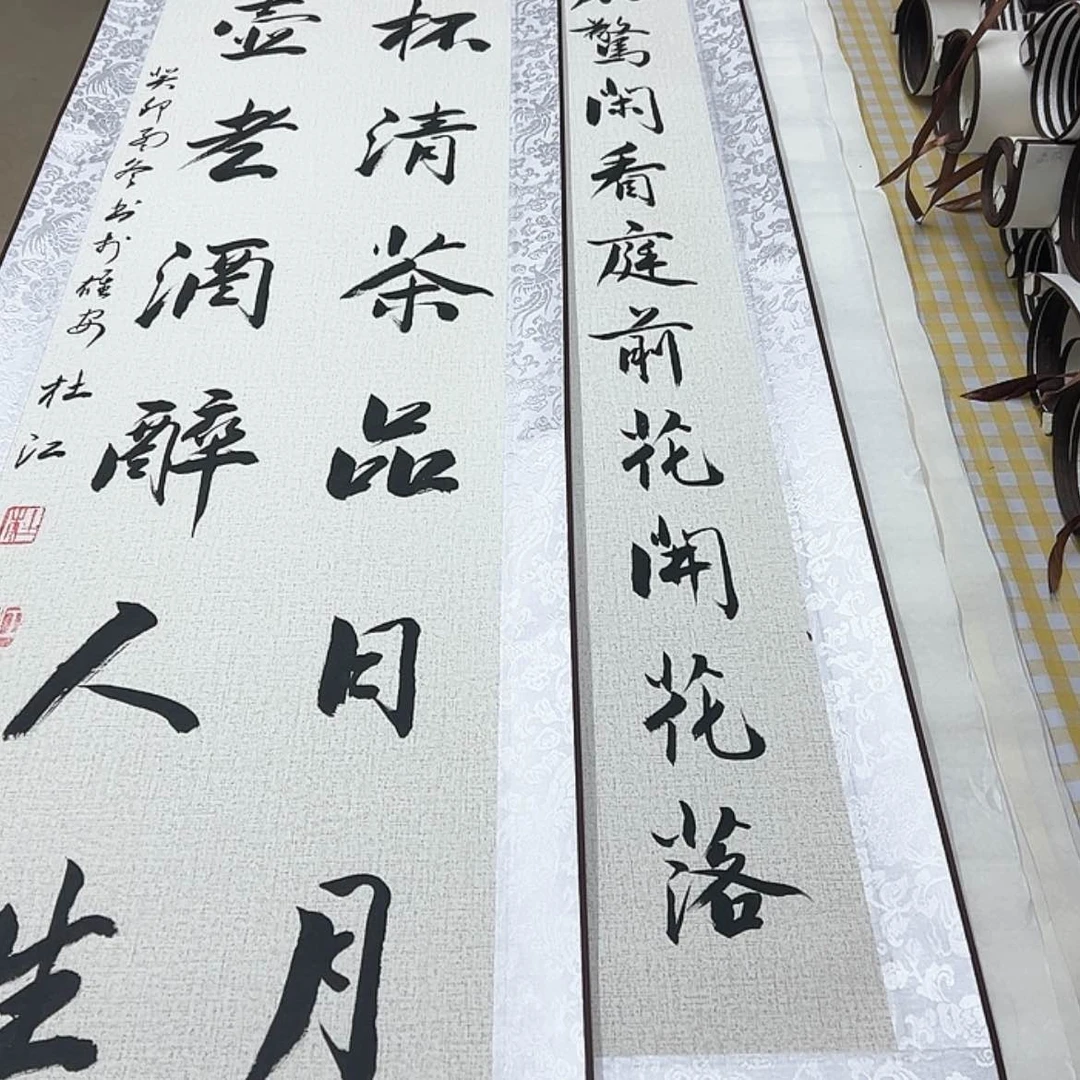 驚閑看庭前花開花落
杯清茶品日月
壶老酒醉人生
癸卯冬书于雄安
杜江